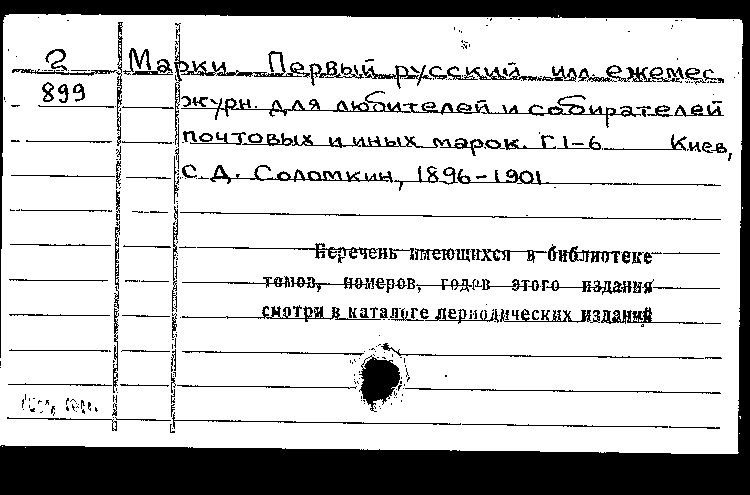 2 Марки. Первый русский илл. ежемес.
899 журн. для любителей и собирателей
почтовых и иных марок. Г. 1-6 Киев,
С. Д. Соломкин, 1896-1901
Перечень имеющихся в библиотеке
томов, номеров, годов этого издания
смотри в каталоге периодических изданий